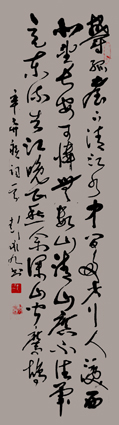 鬱孤臺下清江水中間多少行人淚西
北望長安可憐無數山青山遮不住畢
竟東流去江晚正愁余深山聞鷓鴣
辛弃疾詞一首